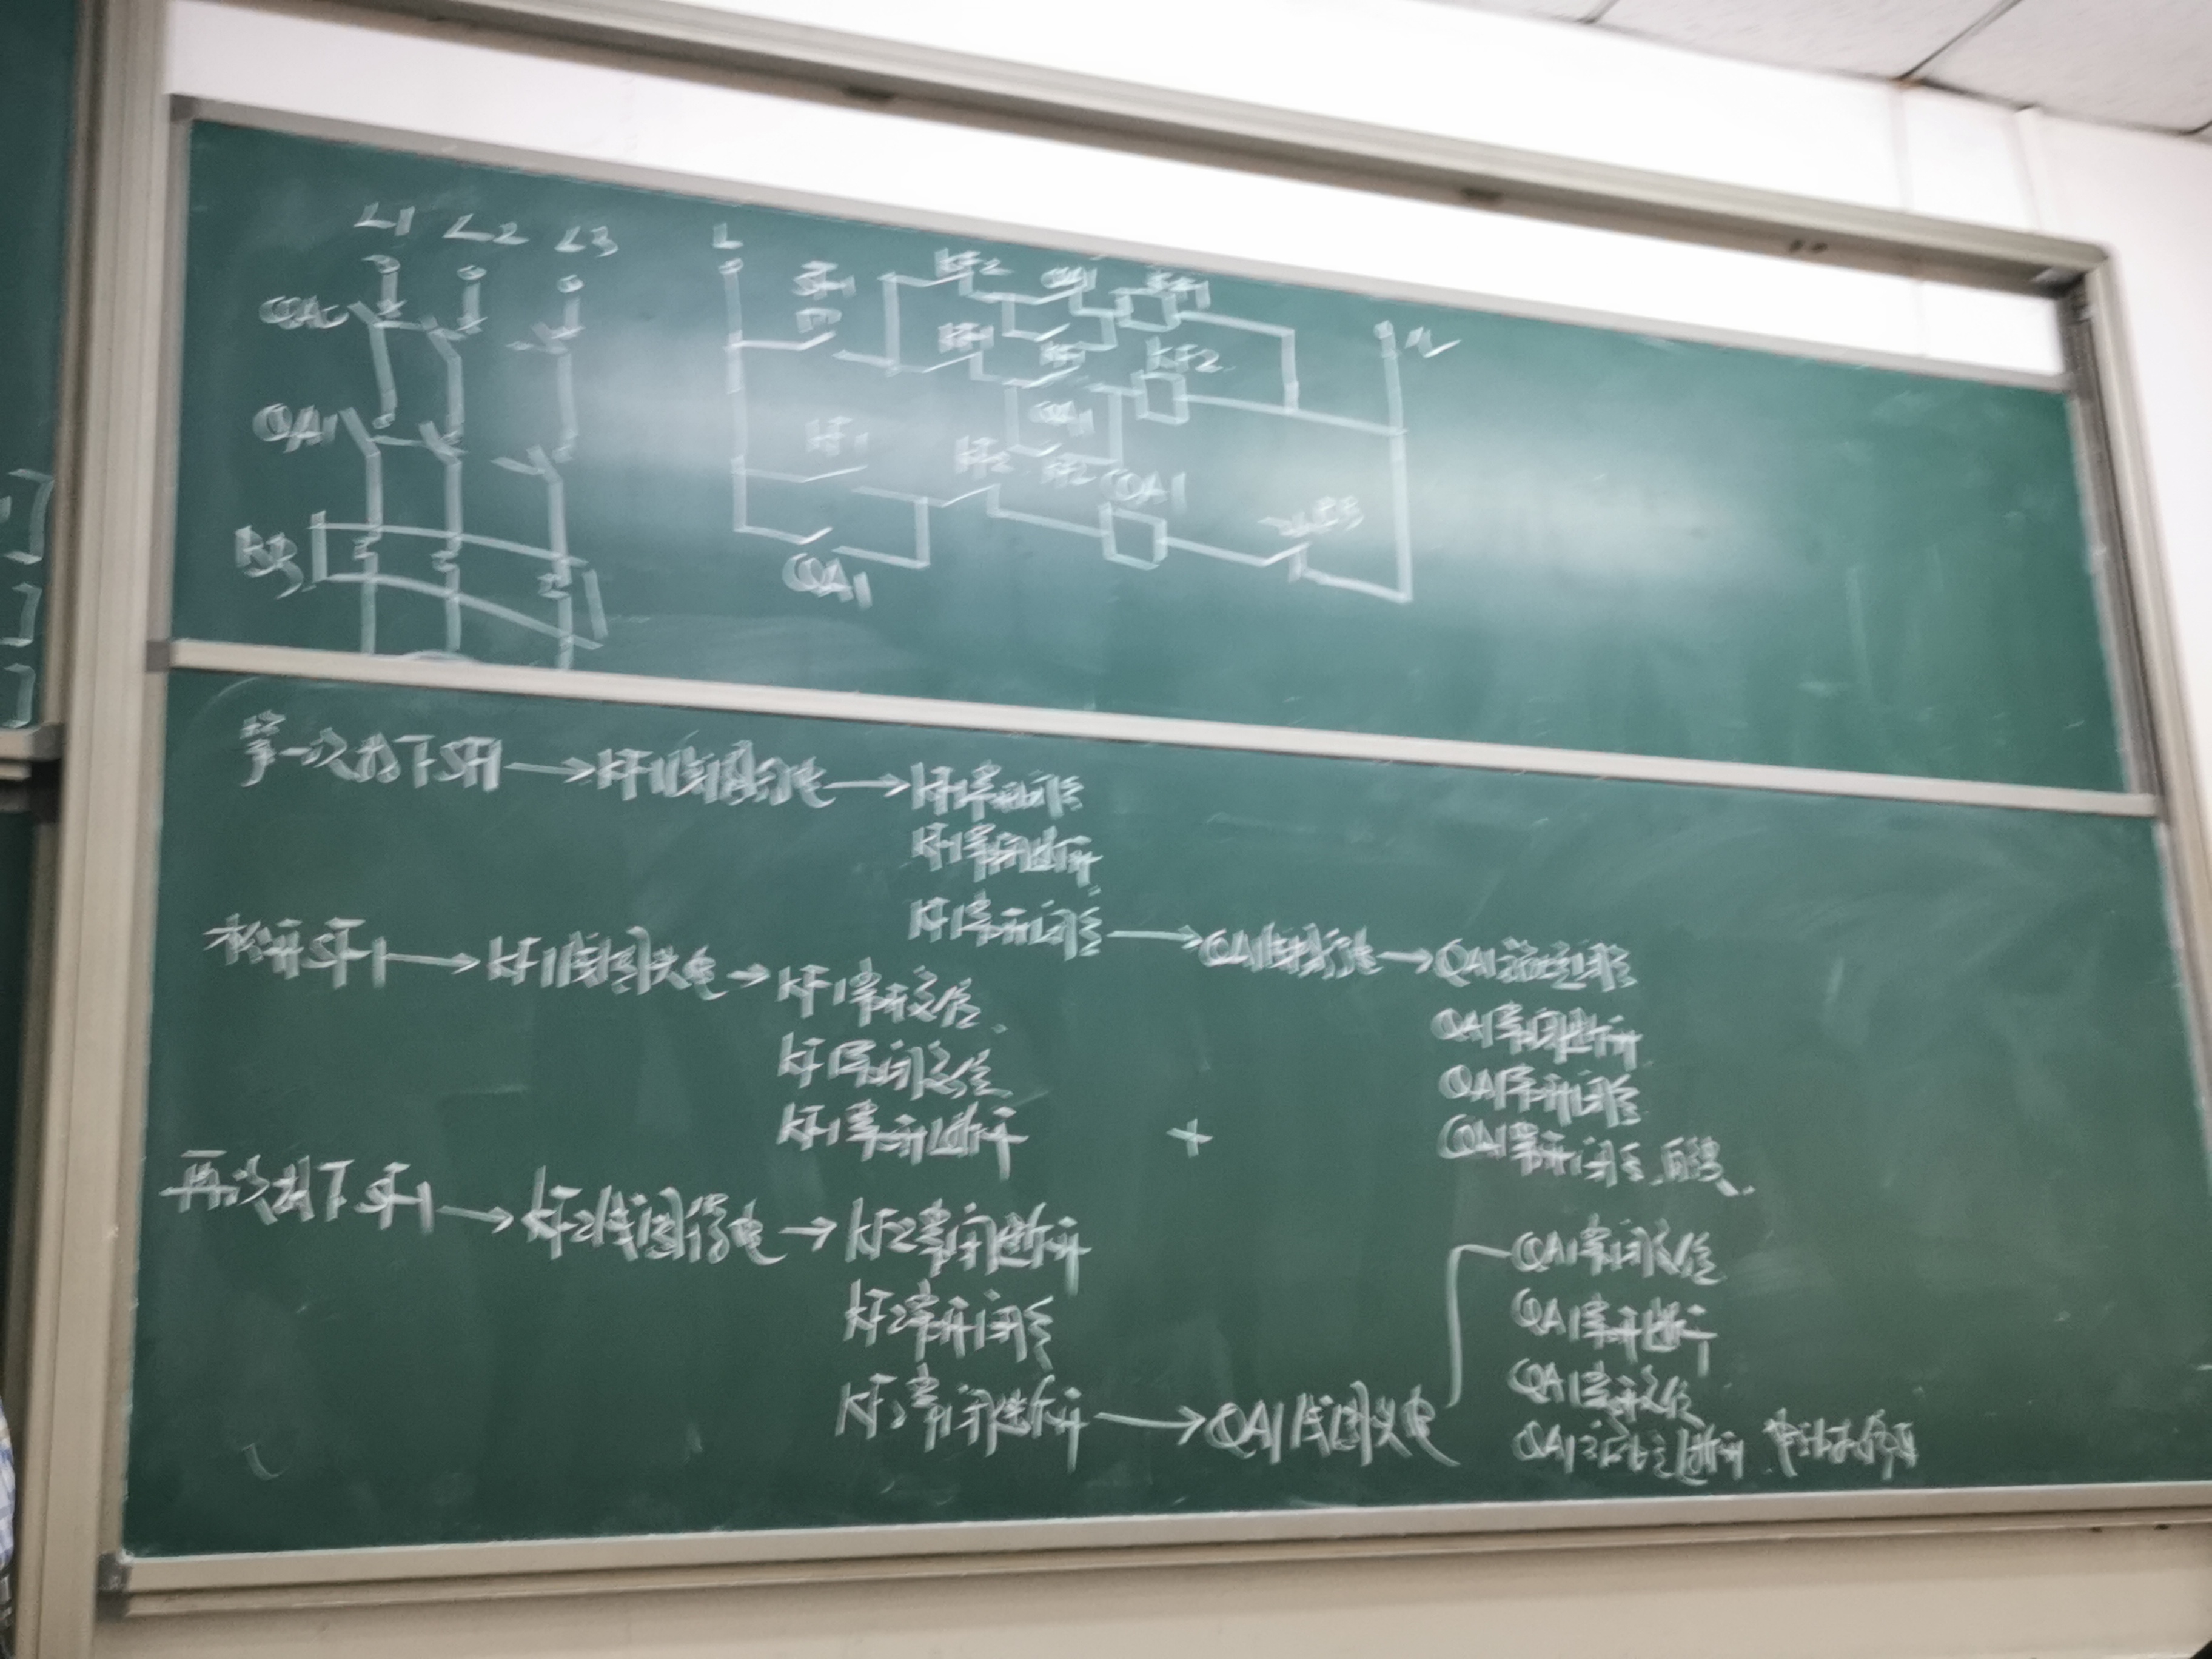 L1 L2 L3
QA0
QA1
L
SF1
KF2 QA1 KF1
KF1 KF1 KF2
QA1
KF1 KF2 KF2 QA1
QA1
N
第一次按下SF1→KF1线圈得电→KF1常开闭合
KF1常闭断开
KF1常开闭合→QA1线圈得电→QA1主触点闭合
QA1常闭断开
QA1常开闭合
QA1常开闭合,自锁.
松开SF1→KF1线圈失电→KF1常开复位.
KF1常闭复位
KF1常开断开
+
再次按下SF1→KF2线圈得电→KF2常闭断开
KF2常开闭合
KF2常闭断开→QA1线圈失电
QA1常闭复位
QA1常开断开
QA1常开复位
QA1主触点断开.